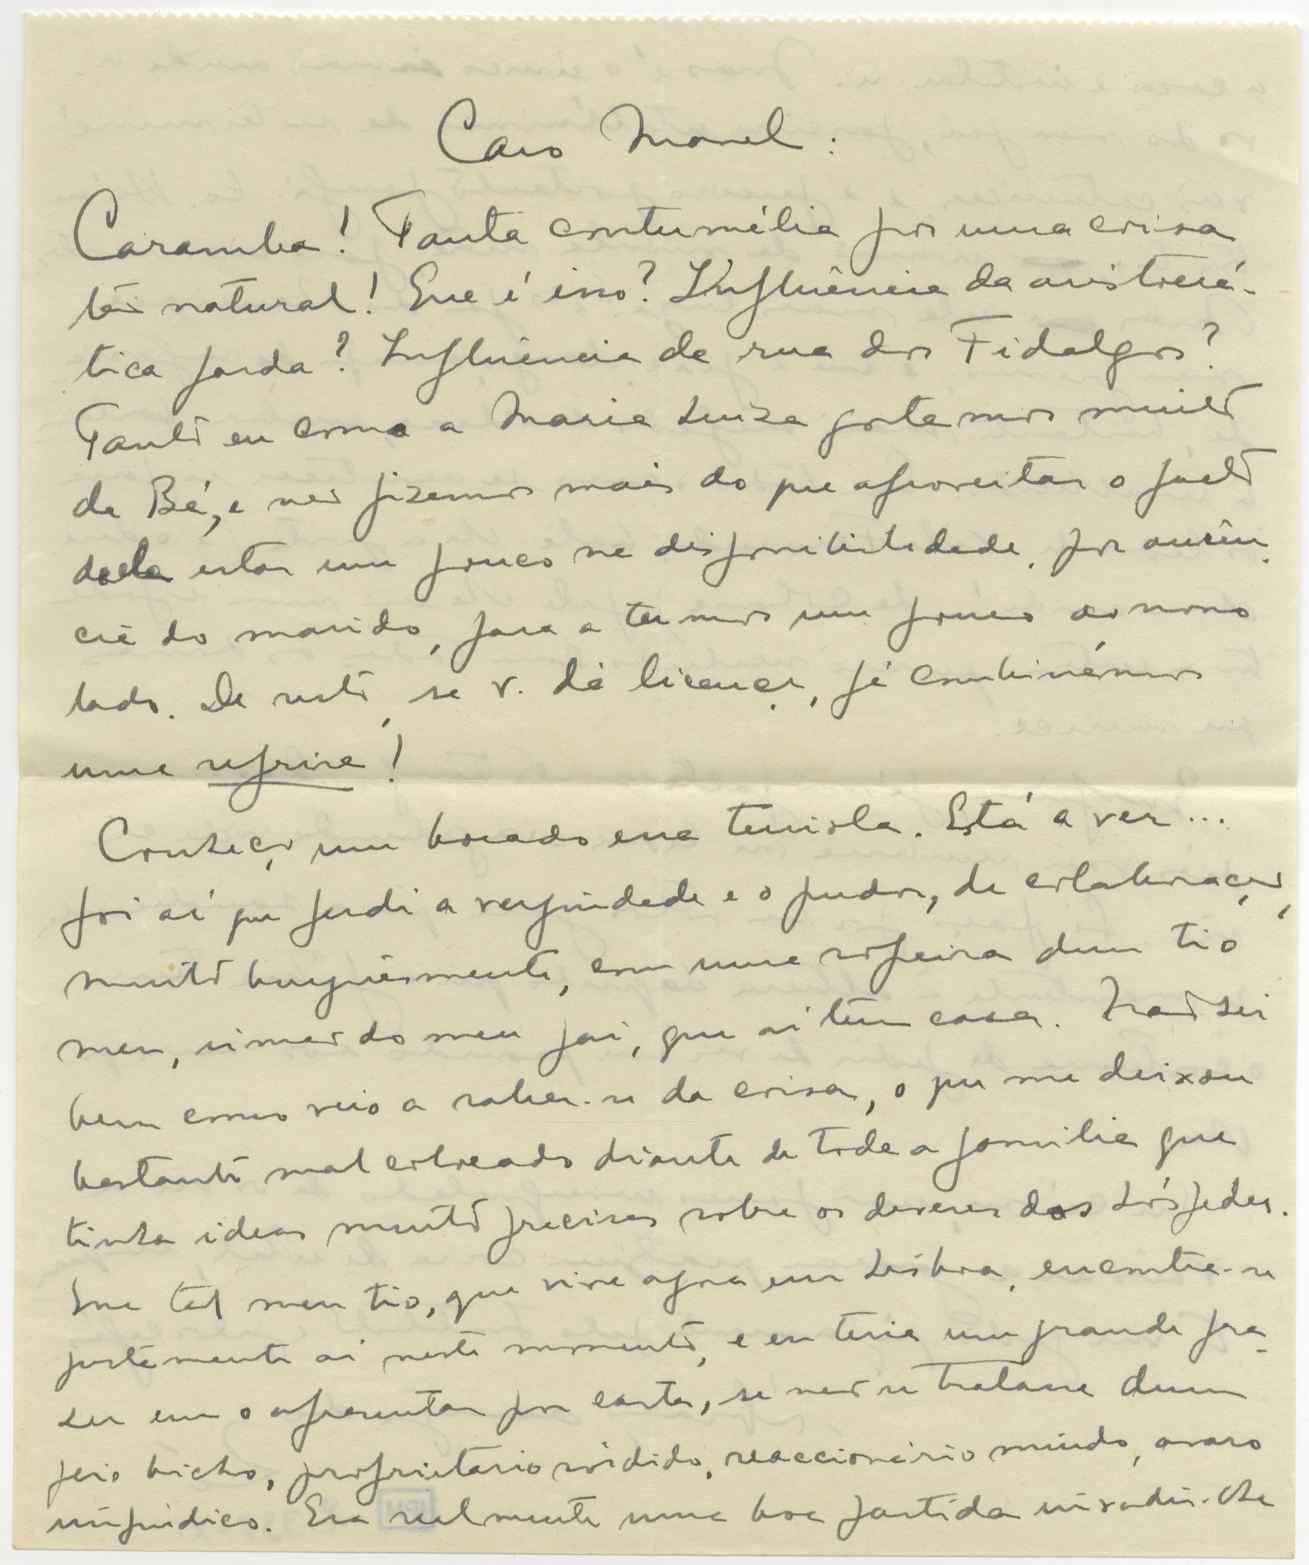 Caro Manel:
Caramba! Tanta contumélia por uma coisa
tão natural! Que é isso? Influência da aristocrá-
tica farda? Influência da rua dos Fidalgos?
Tanto eu como a Maria Luiza gostamos muito
da Bé, e não fizemos mais do que aproveitar o facto
dela estar um pouco na disponibilidade, por ausên-
cia do marido, para a termos um pouco ao nosso
lado. De resto, se v. dá licença, já combinámos
uma reprise!
Conheço um bocado essa terriola. Está a ver...
foi aí que perdi a virgindade e o pudor, de colaboração,
muito burguêsmente, com uma sopeira dum tio
meu, irmão do meu pai, que aí tem casa. Não sei
bem como veio a saber-se da coisa, o que me deixou
bastante mal colocado diante de toda a família que
tinha ideas muito precisas sobre os deveres dos hóspedes.
Esse tal meu tio, que vive agora em Lisboa, encontra-se
justamente aí neste momento, e eu teria um grande pra-
zer em o apresentar por carta, se não se tratasse dum
feio bicho, proprietário sórdido, reaccionário miúdo, avaro
impúdico. Era realmente uma boa partida invadir-lhe